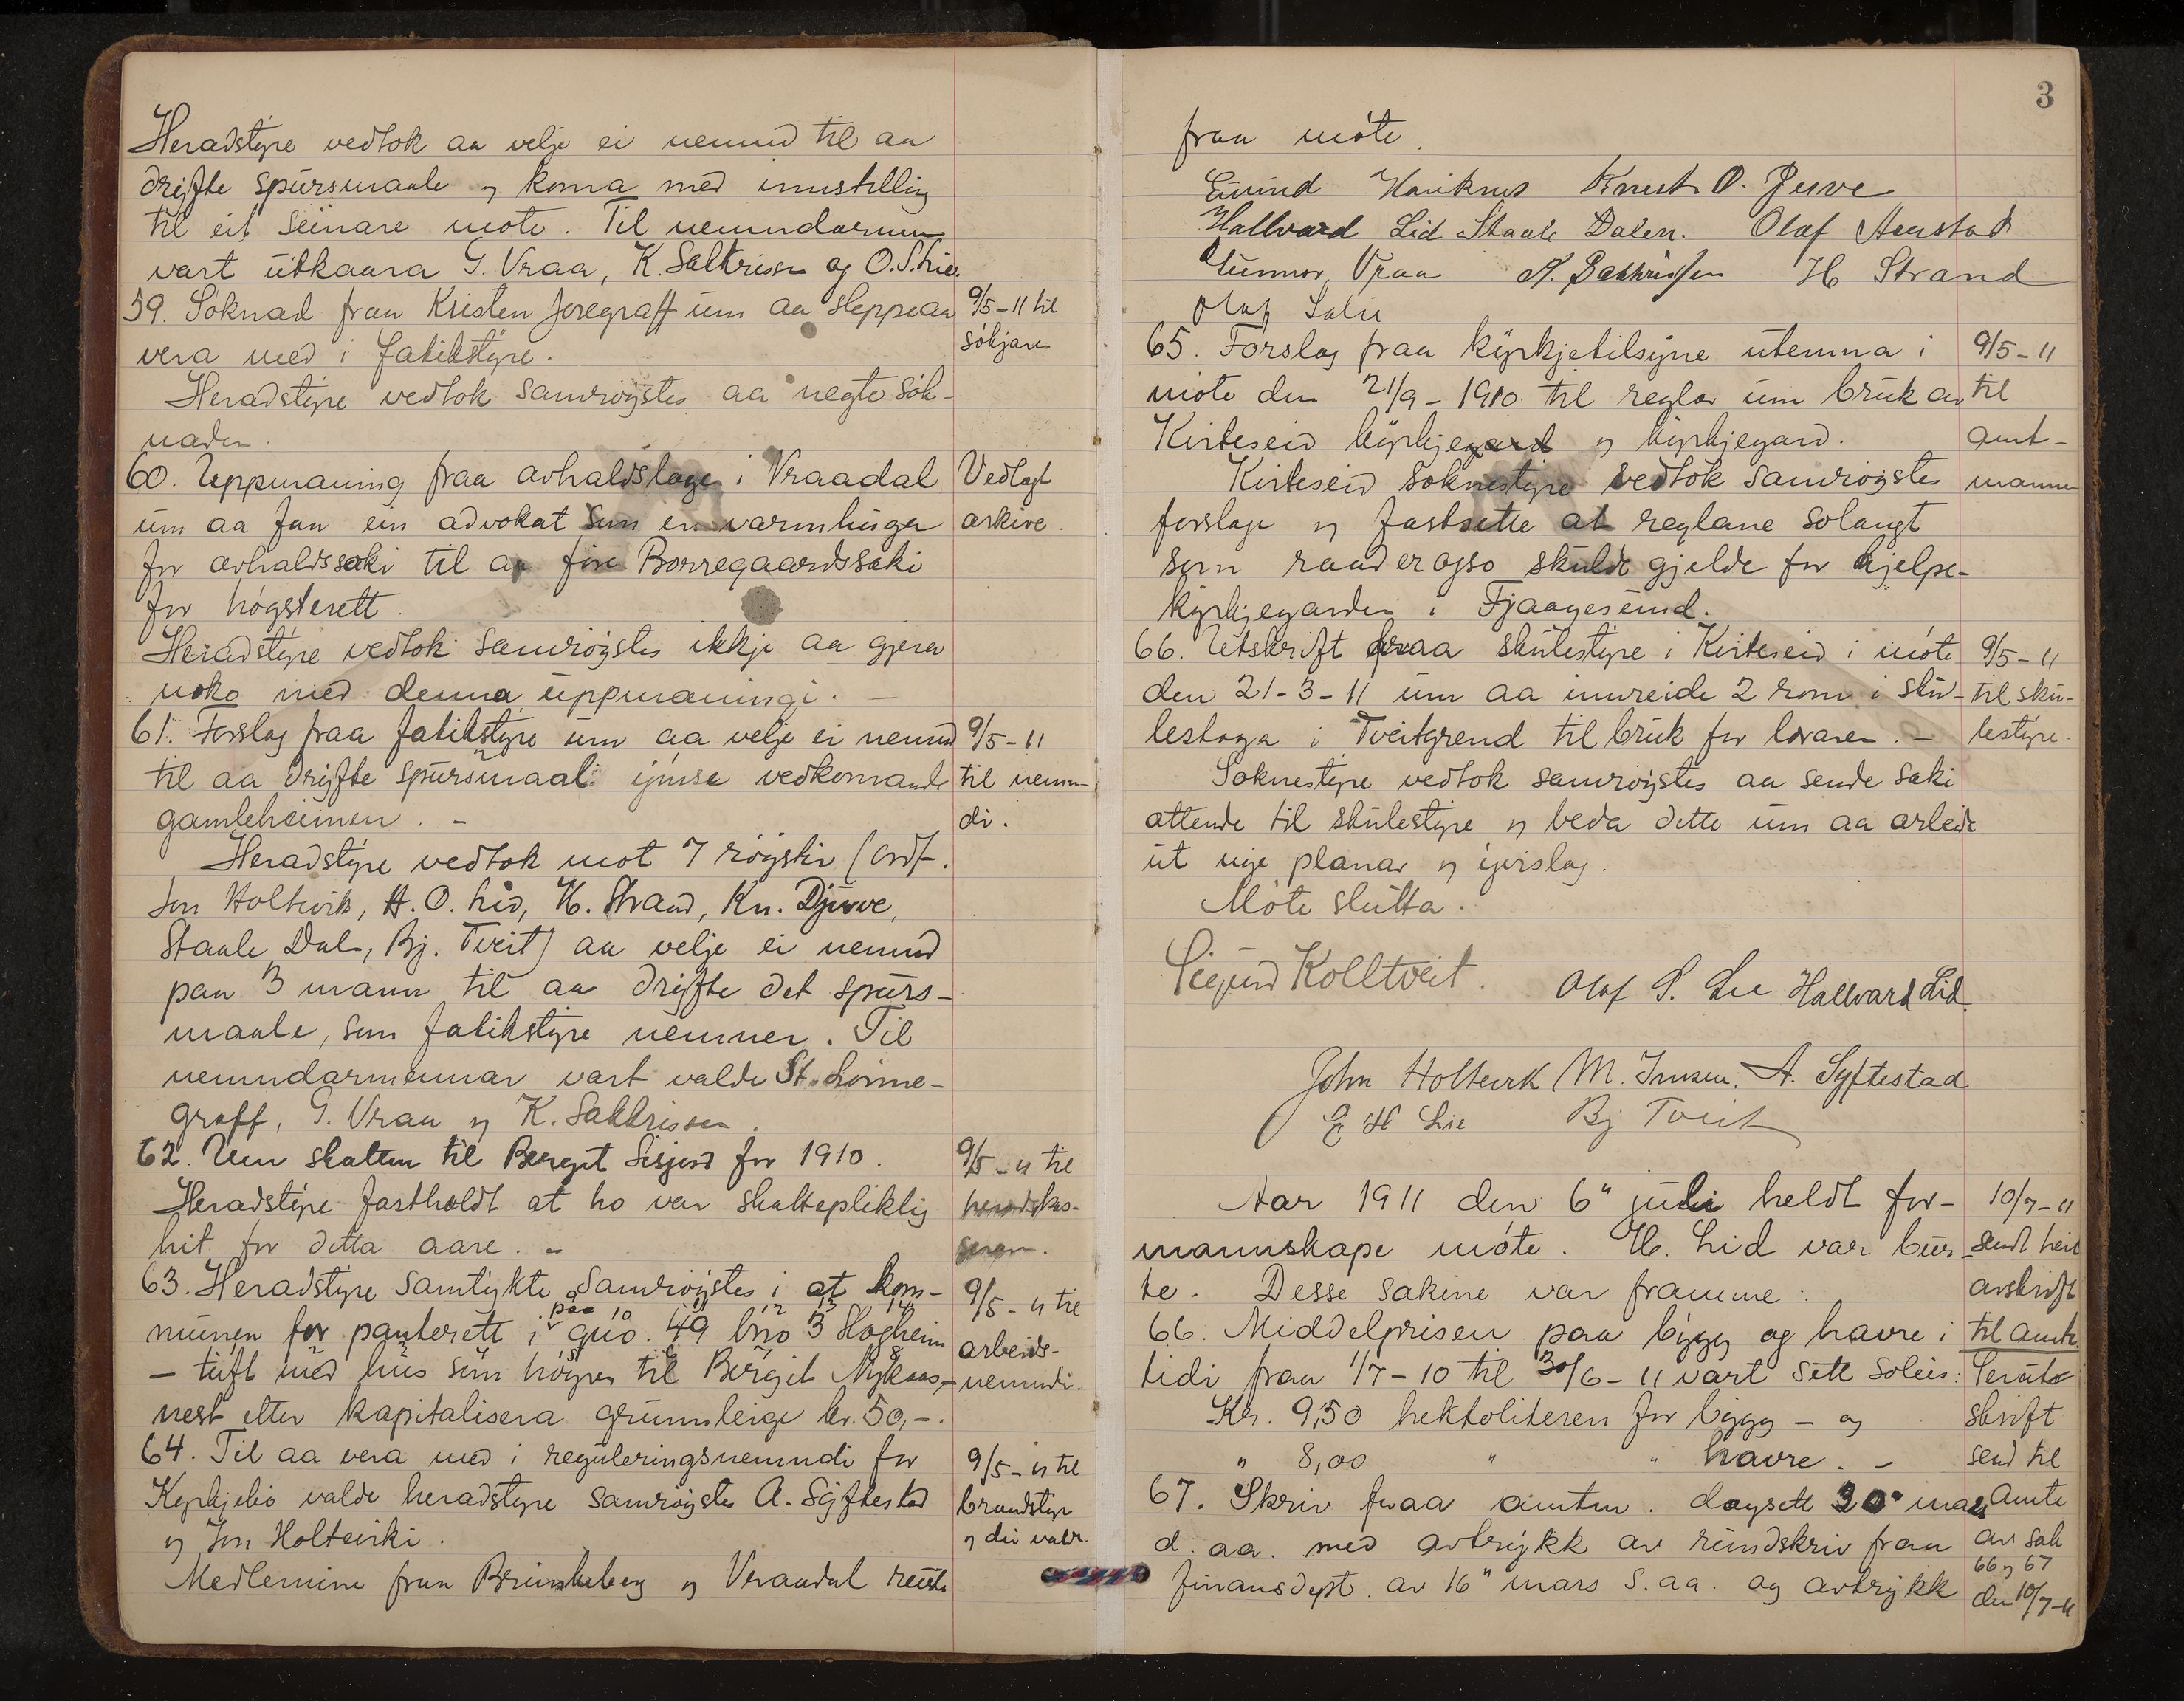 Heradstyre vedtok aa velje ei nemnd til aa
drøfte spursmaale og koma med innstilling
til eit seinare møte. Til nemndarmenn
vart utkaara G. Vraa, K. Sakkrissen og O. S. Lie.
59. Søknad fraa Kristen Joregraff um aa sleppe aa
9/5-11 til
søkjaren
vera med i fatikstyre.
Heradstyre vedtok samrøystes aa negte søk-
naden.
60. Uppmaning fraa avhaldslage i Vraadal
Vedlagt
um aa faa ein advokat sum er varmhuga
arkive.
for avhaldssaki til aa føre Borregaardssaki
for høgsterett.
Heradstyre vedtok samrøystes ikkje aa gjera
noko med denna uppmaningi. -
61. Forslag fraa fatikstyre um aa velje ei nemnd
9/5-11
til aa drøfte spursmaal ymse vedkomande
til nemn-
gamleheimen. -
di.
Heradstyre vedtok mot 7 røyster (ordf.
Jon Holtvik, H. O. Lid, H. Strand, Kn. Djuve,
Staale Dale, Bj. Tveit) aa velje ei nemnd
paa 3 mann til aa drøfte det spurs-
maale, sum fatikstyre nemner. Til
nemndarmennar vart valde St. Lønne-
graff, G. Vraa og K. Sakkrissen.
62. Um skatten til Bergit Sisjord for 1910.
9/5-11 til
Heradstyre fastholdt at ho var skattepliktig
heradskas-
hit for detta aare. -
seraren.
63. Heradstyre samtykte samrøystes i at kom-
9/5-11 til
munen for panterett i gno. 49 bno 3 Høgheim
paa
arbeids-
- tuft med hus sum høyrer til Bergit Nykaas,-
nemndi.
nest etter kapitalisera grunnleige kr. 50,-.
64. Til aa vera med i reguleringsnemndi for
9/5-11 til
Kyrkjebø valde heradstyre samrøystes A. Syftestad
brandstyre
og Jon Holtvik.
og dei valde.
Medlemine fraa Brunkeberg og Vraadal reiste
3
fraa møte.
Eivind Hauknes Knut O. Juve
Hallvard Lid Staale Dalen. Olaf Aarstad
Gunnar Vraa K. Sakkrissen H Strand
Olaf Lalie
65. Forslag fraa kyrkjetilsyne utemna i
9/5-11
møte den 21/9-1910 til reglar um bruk av
til
Kviteseid kyrkjegard og kyrkjegard.
amt-
Kviteseid soknestyre vedtok samrøystes
mannen
forslage og fastsette at reglane solangt
som raader ogso skulde gjelde for hjelpe-
kyrkjegarden i Fjaagesund.
66. Utskrift fraa skulestyre i Kviteseid i møte
9/5-11
den 21-3-11 um aa innreide 2 rom i sku-
til sku-
lestoga i Tveitgrend til bruk for læraren. -
lestyre.
Soknestyre vedtok samrøystes aa sende saki
attende til skulestyre og beda dette um aa arbeide
ut nye planar og yverslag.
Møte slutta.
Siguurd Kolltveit. Olaf S. Lie Hallvard Lid.
John Holtvik M. Jensen. A. Syftestad
E H Lie Bj Tveit
Aar 1911 den 6" juli heldt for-
10/7-11
mannskape møte. H. Lid var burs
sendt heil
te. Desse sakine var framme:
avskrift
66. Middelprisen paa bygg og havre i
til amte.
tidi fraa 1/7-10 til 30/6-11 vart sett soleis:
Serut-
Kr. 9,50 hektoliteren for bygg - og
skrift
" 8,00 " " havre. -
send til
67. Skriv fraa amtm. dagsett 20" mars
amte
d. aa. med avtrykk av rundskriv fraa
av sak
66 og 67
finansdept. av 16" mars s. aa. og avtrykk
den 10/7-11